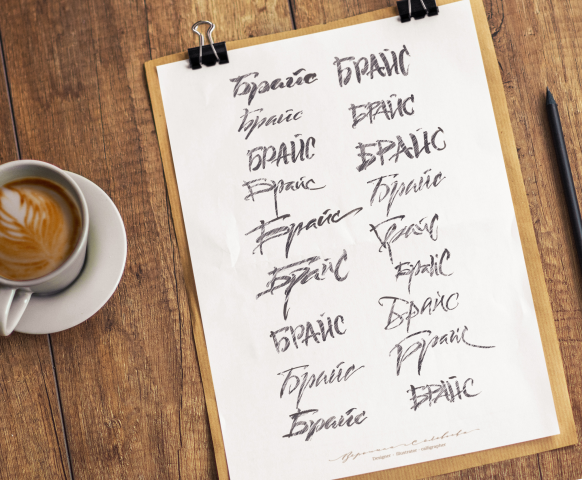 Брайс БРАЙС
Брайс БРАЙС
БРАЙС БРАЙС
Брайс Брайс
Брайс Брайс
Брайс Брайс
БРАЙС Брайс
Брайс Брайс
Брайс БРАЙС
Designer Illustrator calligrapher